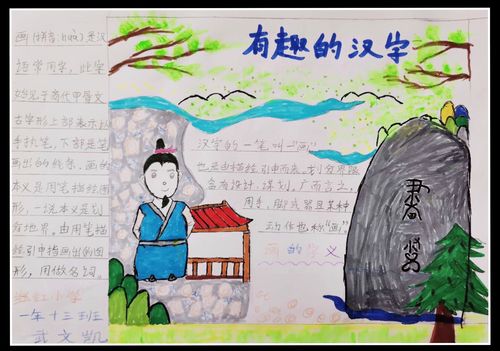 有趣的汉字
画(拼音:huà)是汉
语常用字,此字
始见于商代甲骨文
古字形上部表示以
手执笔,下部是笔
画出的线条,画的
本义是用笔描绘图
形,一说本义是划
分地界。由用笔描
绘引申指画出的图
形,用做名词。
一年十三班
武文凯
汉字的一笔叫一"画"
也是由描绘引申而来。划分界限
含有设计,谋划,广而言之,
用手,脚或器具某种
动作也称"画"
画的字义